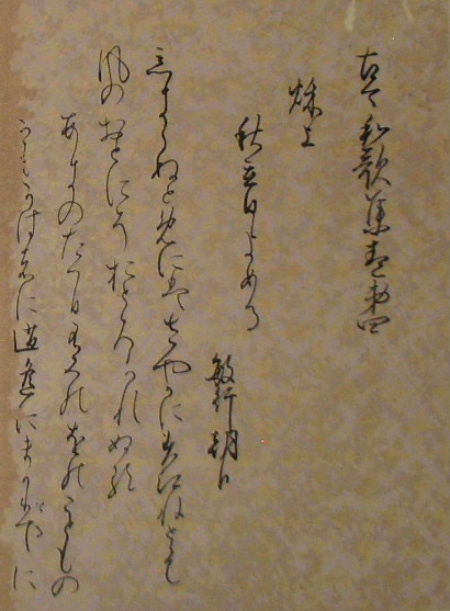 古今和歌集巻第四
秋上
秋立日よめる
敏行朝臣
あきゝぬとめにはさやかに見えねとも
風のおとにそおとろかれぬる
あきのたつ日うへのをのこ
に逍遥にまかり